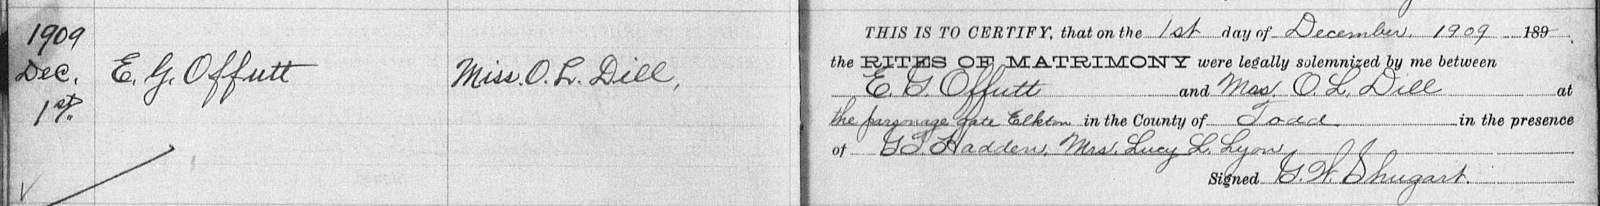 1909
Dec.
1st.
E. G. Offutt
Miss. O. L. Dill,
THIS IS TO CERTIFY, that on the 1st day of December, 1909 189
the RITES OF MATRIMONY were legally solemnized by me between
E. G. Offutt and Miss, O. L. Dill at
the parsonage gate Elkton in the County of Todd in the presence
of G T Hadden, Mrs. Lucy L. Lyon
Signed G. W. Shugart.